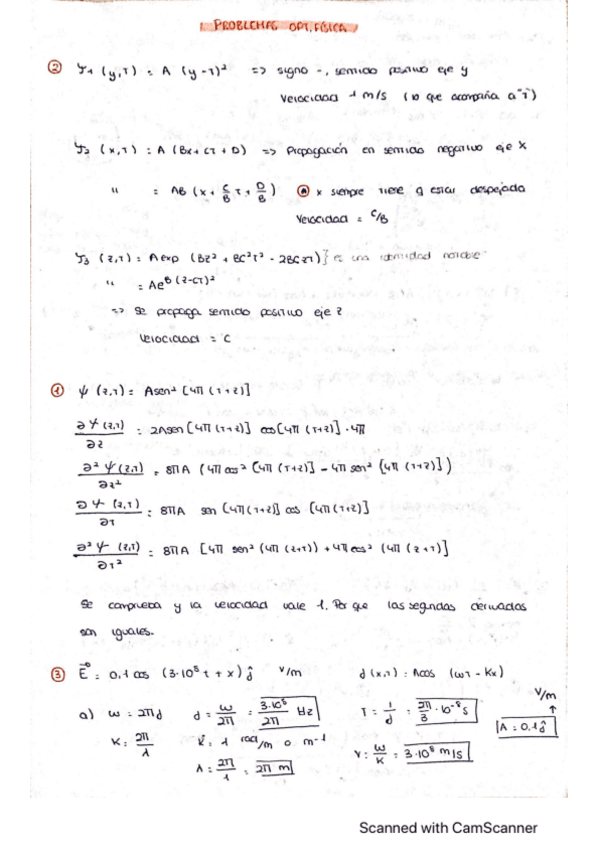 PROBLEMAS OPT. FÍSICA
② Ψ₁ (y,t) = A (y - t)² => signo -, sentido positivo eje y
velocidad 1 m/s (lo que acompaña a "t")
Ψ₂ (x,t) = A (Bx + Ct + D) => Propagación en sentido negativo eje x
" = AB (x + C/B t + D/B) x siempre tiene q estar despejada
velocidad = C/B
Ψ₃ (z,t) = A exp (Bz² + BC²t² - 2BCzt) } es una identidad notable
" = Ae^B (z-ct)²
=> Se propaga sentido positivo eje z
velocidad = C
① Ψ (z,t) = A sen² [4π (t+z)]
∂Ψ (z,t)/∂z = 2A sen [4π (t+z)] cos [4π (t+z)] · 4π
∂²Ψ (z,t)/∂z² = 8πA (4π cos² [4π (t+z)] - 4π sen² [4π (t+z)])
∂Ψ (z,t)/∂t = 8πA sen [4π (t+z)] cos [4π (t+z)]
∂²Ψ (z,t)/∂t² = 8πA [4π sen² (4π (z+t)) + 4π cos² (4π (z+t)]
Se comprueba y la velocidad vale 1. Por que las segundas derivadas
son iguales.
③ E⃗ = 0,1 cos (3·10⁸ t + x) ĵ V/m f (x,t) = A cos (ωt - Kx)
a) ω = 2πf f = ω/2π = 3·10⁸/2π Hz T = 1/f = 2π/3 · 10⁻⁸ s A = 0,1 ĵ V/m
K = 2π/λ K = 1 rad/m o m⁻¹
λ = 2π/1 = 2π m v = ω/K = 3·10⁸ m/s
Scanned with CamScanner